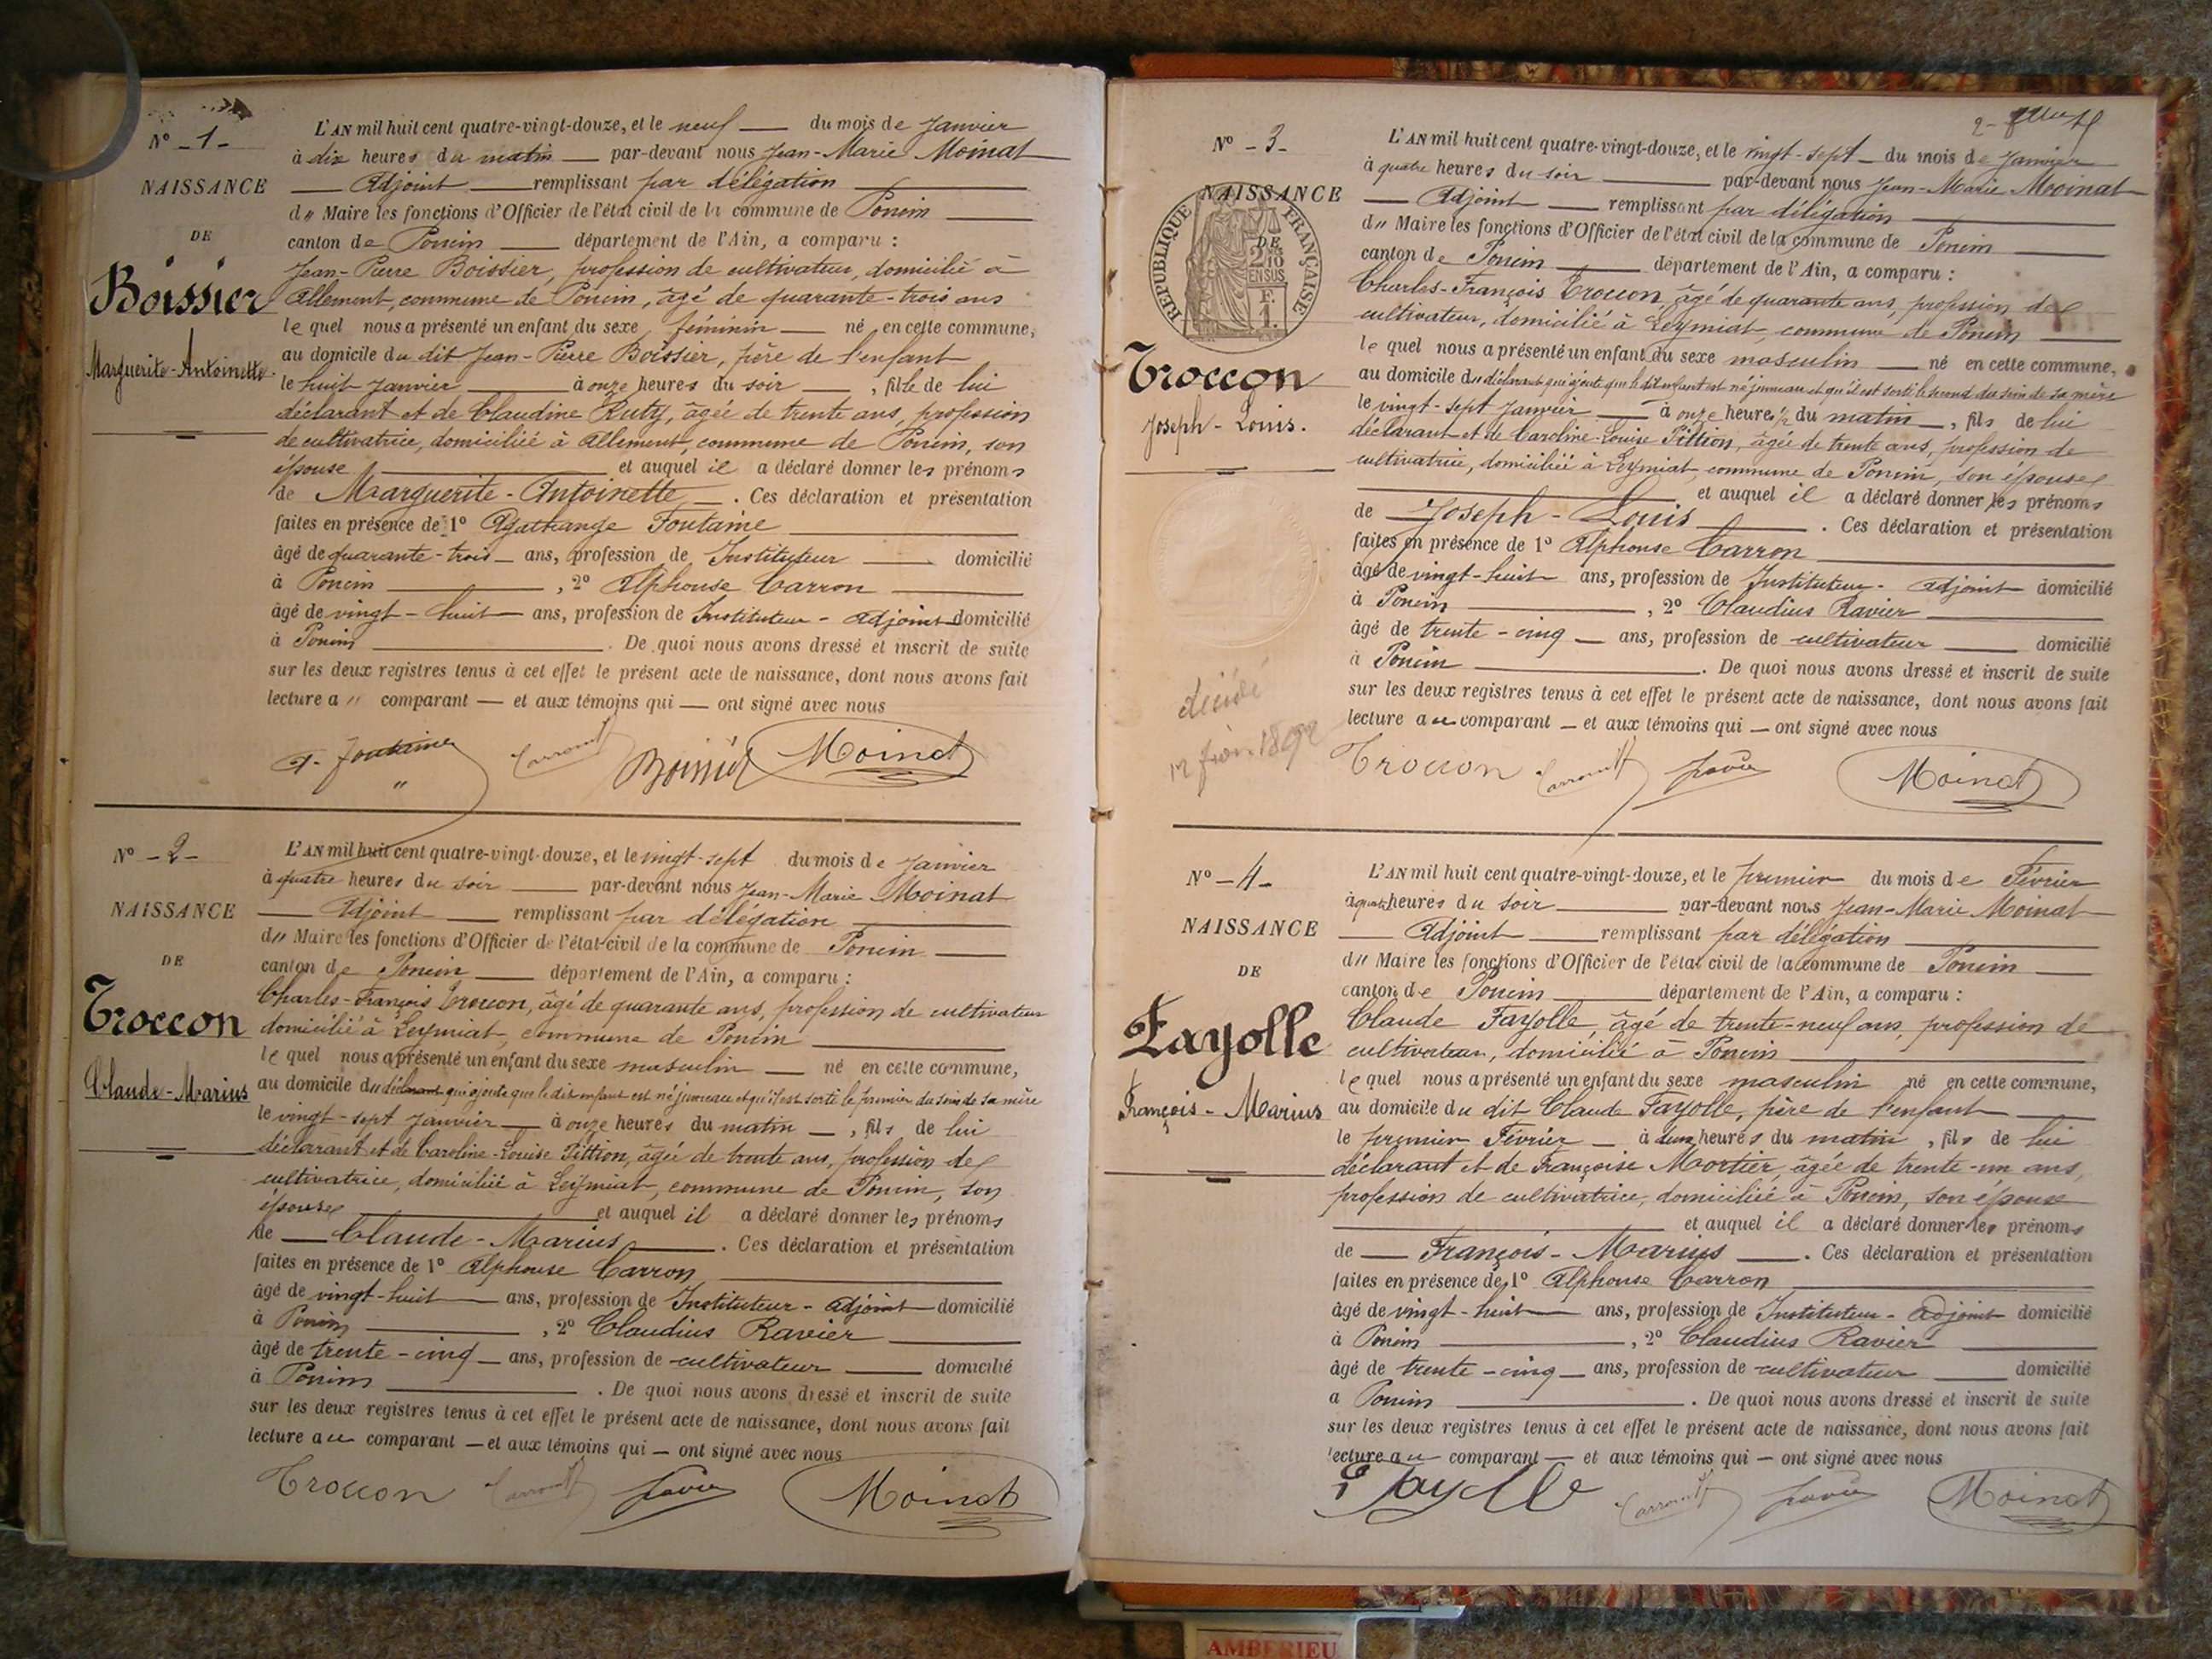 N° - 1 -
NAISSANCE
DE
Boissier
Marguerite-Antoinette.
L'AN mil huit cent quatre-vingt-douze, et le neuf du mois de Janvier
à dix heures du matin par-devant nous Jean-Marie Moinat
Adjoint remplissant par délégation
d" Maire les fonctions d'Officier de l'état civil de la commune de Poncin
canton de Poncin département de l'Ain, a comparu :
Jean-Pierre Boissier, profession de cultivateur, domicilié à
Allement, commune de Poncin, âgé de quarante-trois ans
lequel nous a présenté un enfant du sexe féminin né en cette commune,
au domicile du dit Jean-Pierre Boissier, père de l'enfant
le huit Janvier à onze heures du soir, fille de lui
déclarant et de Claudine Ruty, âgée de trente ans, profession
de cultivatrice, domiciliée à Allement, commune de Poncin, son
épouse et auquel il a déclaré donner les prénoms
de Marguerite-Antoinette. Ces déclaration et présentation
faites en présence de 1° Agathange Fontaine
âgé de quarante-trois ans, profession de Instituteur domicilié
à Poncin, 2° Alphonse Carron
âgé de vingt-huit ans, profession de Instituteur-adjoint domicilié
à Poncin. De quoi nous avons dressé et inscrit de suite
sur les deux registres tenus à cet effet le présent acte de naissance, dont nous avons fait
lecture a" comparant — et aux témoins qui — ont signé avec nous
A. Fontaine Carron Boissier Moinat
N° - 2 -
NAISSANCE
DE
Troccon
Claude-Marius
L'AN mil huit cent quatre-vingt-douze, et le vingt-sept du mois de Janvier
à quatre heures du soir par-devant nous Jean-Marie Moinat
Adjoint remplissant par délégation
d" Maire les fonctions d'Officier de l'état civil de la commune de Poncin
canton de Poncin département de l'Ain, a comparu :
Charles-François Troccon, âgé de quarante ans, profession de cultivateur
domicilié à Leymiat, commune de Poncin
lequel nous a présenté un enfant du sexe masculin né en cette commune,
au domicile du déclarant qui ajoute que le dit enfant est né jumeau et qu'il est sorti le premier du sein de sa mère
le vingt-sept Janvier à onze heures du matin, fils de lui
déclarant et de Caroline-Louise Pittion, âgée de trente ans, profession de
cultivatrice, domiciliée à Leymiat, commune de Poncin, son
épouse et auquel il a déclaré donner les prénoms
de Claude-Marius. Ces déclaration et présentation
faites en présence de 1° Alphonse Carron
âgé de vingt-huit ans, profession de Instituteur-adjoint domicilié
à Poncin, 2° Claudius Ravier
âgé de trente-cinq ans, profession de cultivateur domicilié
à Poncin. De quoi nous avons dressé et inscrit de suite
sur les deux registres tenus à cet effet le présent acte de naissance, dont nous avons fait
lecture au comparant — et aux témoins qui — ont signé avec nous
Troccon Carron Ravier Moinat
2-
N° - 3 -
NAISSANCE
DE
REPUBLIQUE FRANÇAISE
2/10
EN SUS
F.
1.
Troccon
Joseph-Louis.
décédé
12 févr. 1892
L'AN mil huit cent quatre-vingt-douze, et le vingt-sept du mois de Janvier
à quatre heures du soir par-devant nous Jean-Marie Moinat
Adjoint remplissant par délégation
d" Maire les fonctions d'Officier de l'état civil de la commune de Poncin
canton de Poncin département de l'Ain, a comparu :
Charles-François Troccon, âgé de quarante ans, profession de
cultivateur, domicilié à Leymiat, commune de Poncin
lequel nous a présenté un enfant du sexe masculin né en cette commune,
au domicile du déclarant qui ajoute que le dit enfant est né jumeau et qu'il est sorti le second du sein de sa mère
le vingt-sept Janvier à onze heures ½ du matin, fils de lui
déclarant et de Caroline-Louise Pittion, âgée de trente ans, profession de
cultivatrice, domiciliée à Leymiat, commune de Poncin, son épouse
et auquel il a déclaré donner les prénoms
de Joseph-Louis. Ces déclaration et présentation
faites en présence de 1° Alphonse Carron
âgé de vingt-huit ans, profession de Instituteur-adjoint domicilié
à Poncin, 2° Claudius Ravier
âgé de trente-cinq ans, profession de cultivateur domicilié
à Poncin. De quoi nous avons dressé et inscrit de suite
sur les deux registres tenus à cet effet le présent acte de naissance, dont nous avons fait
lecture au comparant — et aux témoins qui — ont signé avec nous
Troccon Carron Ravier Moinat
N° - 4 -
NAISSANCE
DE
Fayolle
François-Marius
L'AN mil huit cent quatre-vingt-douze, et le premier du mois de Février
à quatre heures du soir par-devant nous Jean-Marie Moinat
Adjoint remplissant par délégation
d" Maire les fonctions d'Officier de l'état civil de la commune de Poncin
canton de Poncin département de l'Ain, a comparu :
Claude Fayolle, âgé de trente-neuf ans, profession de
cultivateur, domicilié à Poncin
lequel nous a présenté un enfant du sexe masculin né en cette commune,
au domicile du dit Claude Fayolle, père de l'enfant
le premier Février à deux heures du matin, fils de lui
déclarant et de Françoise Mortier, âgée de trente-un ans,
profession de cultivatrice, domiciliée à Poncin, son épouse
et auquel il a déclaré donner les prénoms
de François-Marius. Ces déclaration et présentation
faites en présence de 1° Alphonse Carron
âgé de vingt-huit ans, profession de Instituteur-adjoint domicilié
à Poncin, 2° Claudius Ravier
âgé de trente-cinq ans, profession de cultivateur domicilié
a Poncin. De quoi nous avons dressé et inscrit de suite
sur les deux registres tenus à cet effet le présent acte de naissance, dont nous avons fait
lecture au comparant — et aux témoins qui — ont signé avec nous
Fayolle Carron Ravier Moinat
AMBERIEU